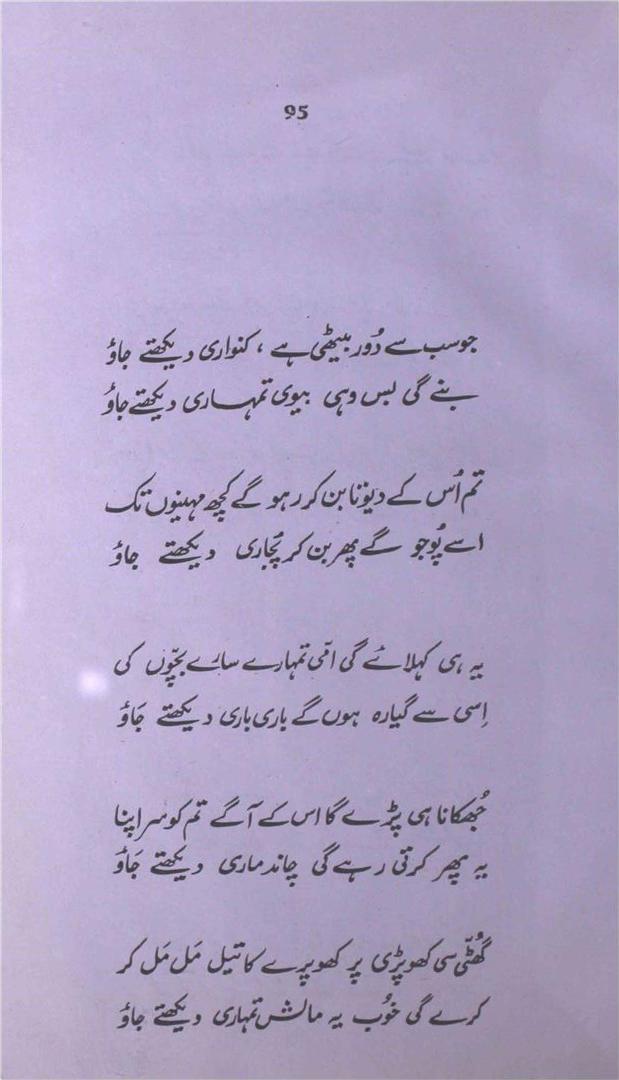 95
جو سب سے دُور بیٹھی ہے ، کنواری دیکھتے جاؤ
بنے گی بس وہی بیوی تمہاری دیکھتے جاؤ
تم اُس کے دیوتا بن کر رہو گے کچھ مہینوں تک
اسے پُوجو گے پھر بن کر پُجاری دیکھتے جاؤ
یہ ہی کہلائے گی امّی تمہارے سارے بچّوں کی
اِسی سے گیارہ ہوں گے باری باری دیکھتے جَاؤ
جُھکانا ہی پڑے گا اس کے آگے تم کو سر اپنا
یہ پھر کرتی رہے گی چاند ماری دیکھتے جَاؤ
گُھٹی سی کھوپڑی پر کھوپرے کا تیل مَل مَل کر
کرے گی خوُب یہ مالش تمہاری دیکھتے جاؤ